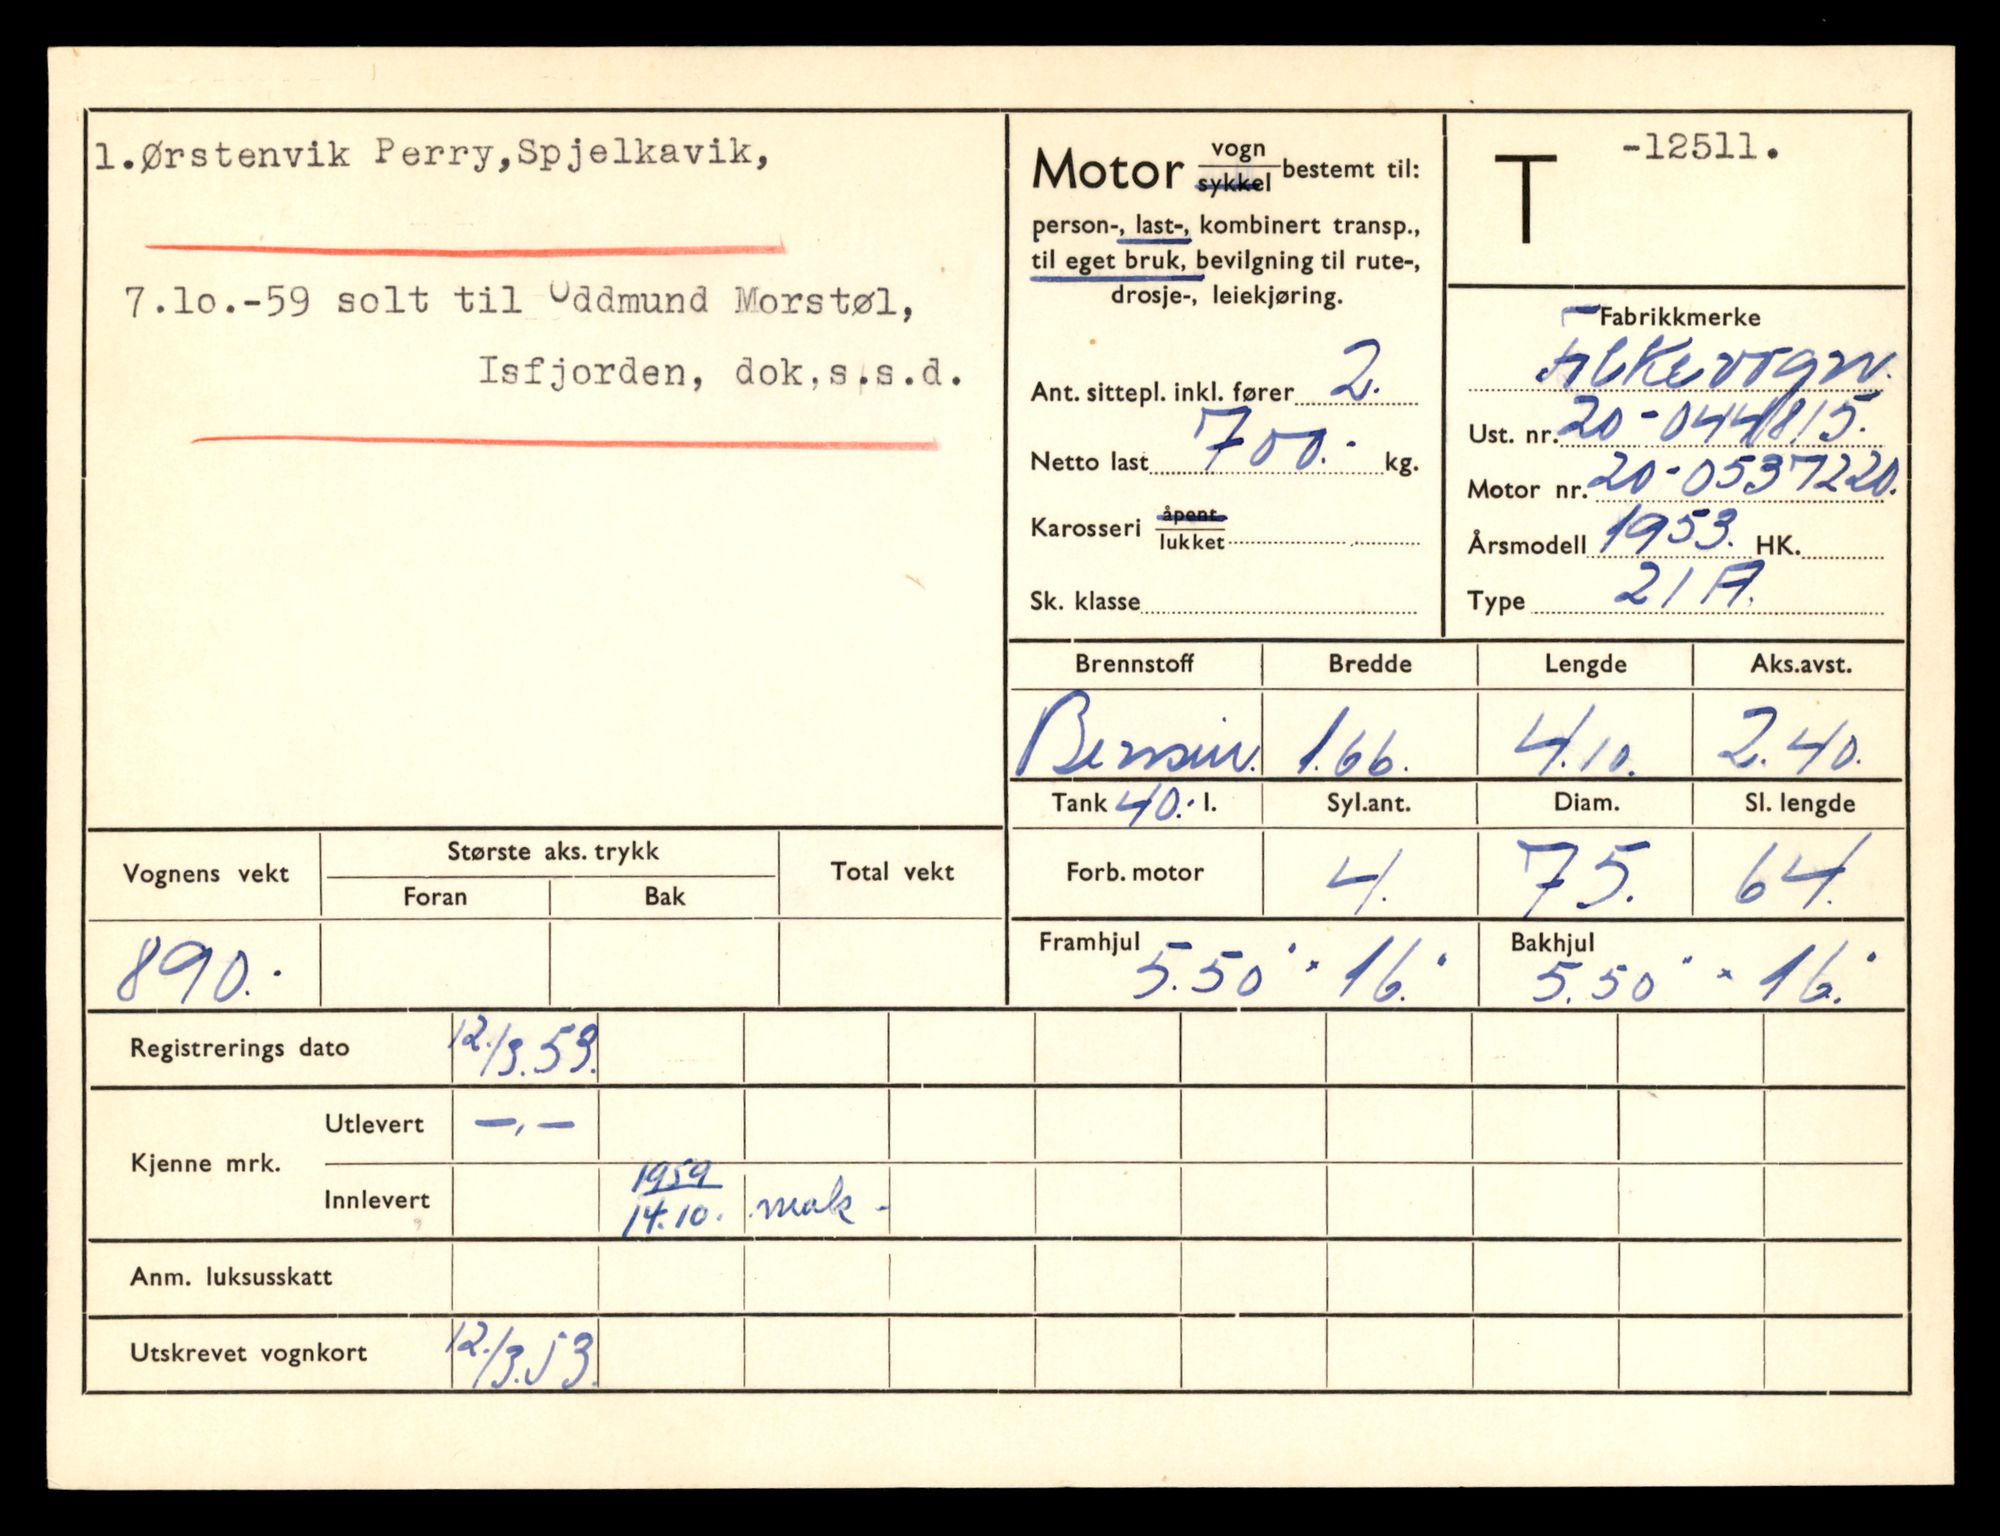 1.Ørstenvik Perry,Spjelkavik,
7.lo.-59 solt til Oddmund Morstøl,
Isfjorden, dok,s.s.d.
Motor vogn sykkel bestemt til:
person-, last-, kombinert transp.,
til eget bruk, bevilgning til rute-,
drosje-, leiekjøring.
Ant. sittepl. inkl. fører 2.
Netto last 700.- kg.
Karosseri åpent lukket
Sk. klasse
T -12511.
Fabrikkmerke
Ust. nr. 20-044815.
Motor nr. 20-0537220.
Årsmodell 1953. HK.
Type 21 A.
Brennstoff Bredde Lengde Aks.avst.
Bensin. 1.66. 4.10. 2.40.
Tank 40.- l. Syl.ant. Diam. Sl. lengde
Forb. motor 4. 75. 64.
Framhjul 5.50" x 16." Bakhjul 5.50" x 16."
Vognens vekt Største aks. trykk Total vekt
Foran Bak
890.-
Registrerings dato 12./3.53.
Kjenne mrk.
Utlevert —,—
Innlevert 1959 14.10. mak -
Anm. luksusskatt
Utskrevet vognkort 12./3.53.